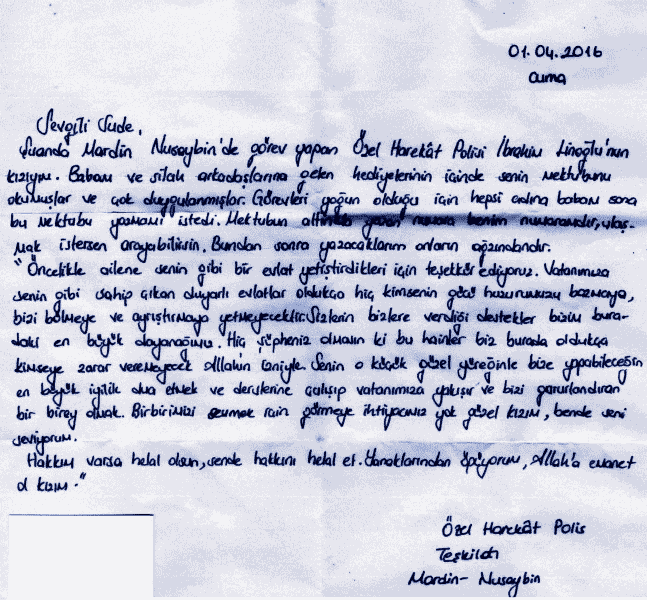 01.04.2016
Cuma
Sevgili Sude,
Şuanda Mardin Nusaybin'de görev yapan Özel Harekât Polisi İbrahim Linoğlu'nun
kızıyım. Babam ve silah arkadaşlarına gelen hediyelerinin içinde senin mektubunu
okumuşlar ve çok duygulanmışlar. Görevleri yoğun olduğu için hepsi adına babam sana
bu mektubu yazmamı istedi. Mektubun altında yazan numara benim numaramdır, ulaş-
mak istersen arayabilirsin. Bundan sonra yazacaklarım onların ağzındandır.
"Öncelikle ailene senin gibi bir evlat yetiştirdikleri için teşekkür ediyoruz. Vatanımıza
senin gibi sahip çıkan duyarlı evlatlar oldukça hiç kimsenin gücü huzurumuzu bozmaya,
bizi bölmeye ve ayrıştırmaya yetmeyecektir. Sizlerin bizlere verdiği destekler bizim bura-
daki en büyük dayanağımız. Hiç şüpheniz olmasın ki bu hainler biz burada oldukça
kimseye zarar veremeyecek Allah'ın izniyle. Senin o küçük güzel yüreğinle bize yapabileceğin
en büyük iyilik dua etmek ve derslerine çalışıp vatanımıza yakışır ve bizi gururlandıran
bir birey olmak. Birbirimizi sevmek için görmeye ihtiyacımız yok güzel kızım, bende seni
seviyorum.
Hakkım varsa helal olsun, sende hakkını helal et. Yanaklarından öpüyorum, Allah'a emanet
ol kızım."
Özel Harekât Polis
Teşkilatı
Mardin- Nusaybin